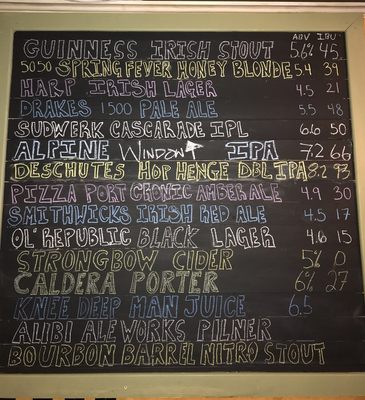 ABV IBU
GUINNESS IRISH STOUT 5.6% 45
5050 SPRING FEVER HONEY BLONDE 5.4 39
HARP IRISH LAGER 4.5 21
DRAKES 1500 PALE ALE 5.5 48
SUDWERK CASCARADE IPL 6.6 50
ALPINE WINDOW IPA 7.2 66
DESCHUTES HOP HENGE DBL IPA 8.2 93
PIZZA PORT CRONIC AMBER ALE 4.9 30
SMITHWICKS IRISH RED ALE 4.5 17
OL' REPUBLIC BLACK LAGER 4.6 15
STRONGBOW CIDER 5% 0
CALDERA PORTER 6% 27
KNEE DEEP MAN JUICE 6.5
ALIBI ALE WORKS PILNER
BOURBON BARREL NITRO STOUT